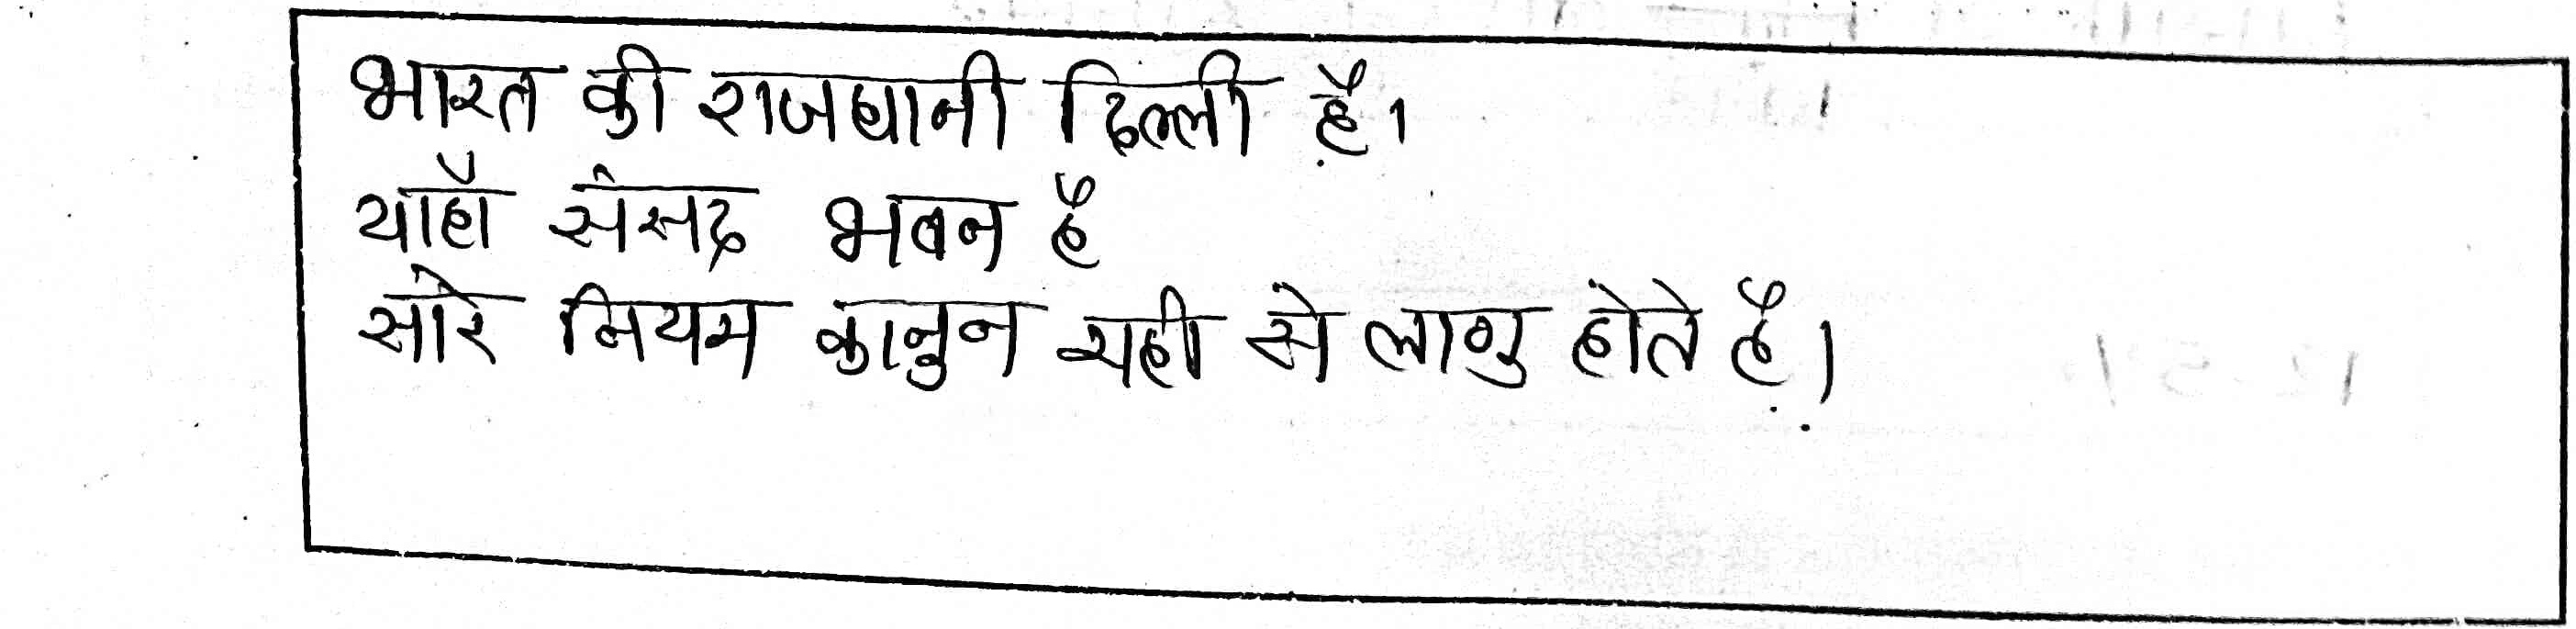 भारत की राजधानी दिल्ली है।
याहाँ संसद भवन है
सारे नियम कानुन यही से लागु होते है।